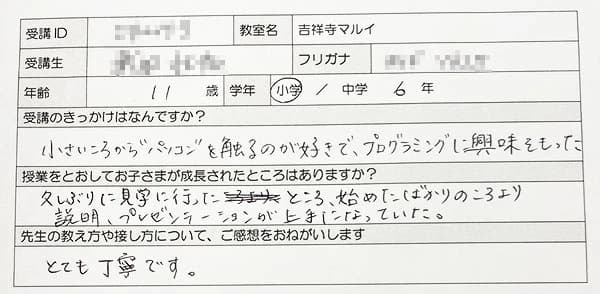 受講ID 教室名 吉祥寺マルイ
受講生 フリガナ
年齢 11 歳 学年 小学 / 中学 6 年
受講のきっかけはなんですか?
小さいころからパソコンを触るのが好きで、プログラミングに興味をもった
授業をとおしてお子さまが成長されたところはありますか?
久しぶりに見学に行ったところ、始めたばかりのころより
説明、プレゼンテーションが上手になっていた。
先生の教え方や接し方について、ご感想をおねがいします
とても丁寧です。